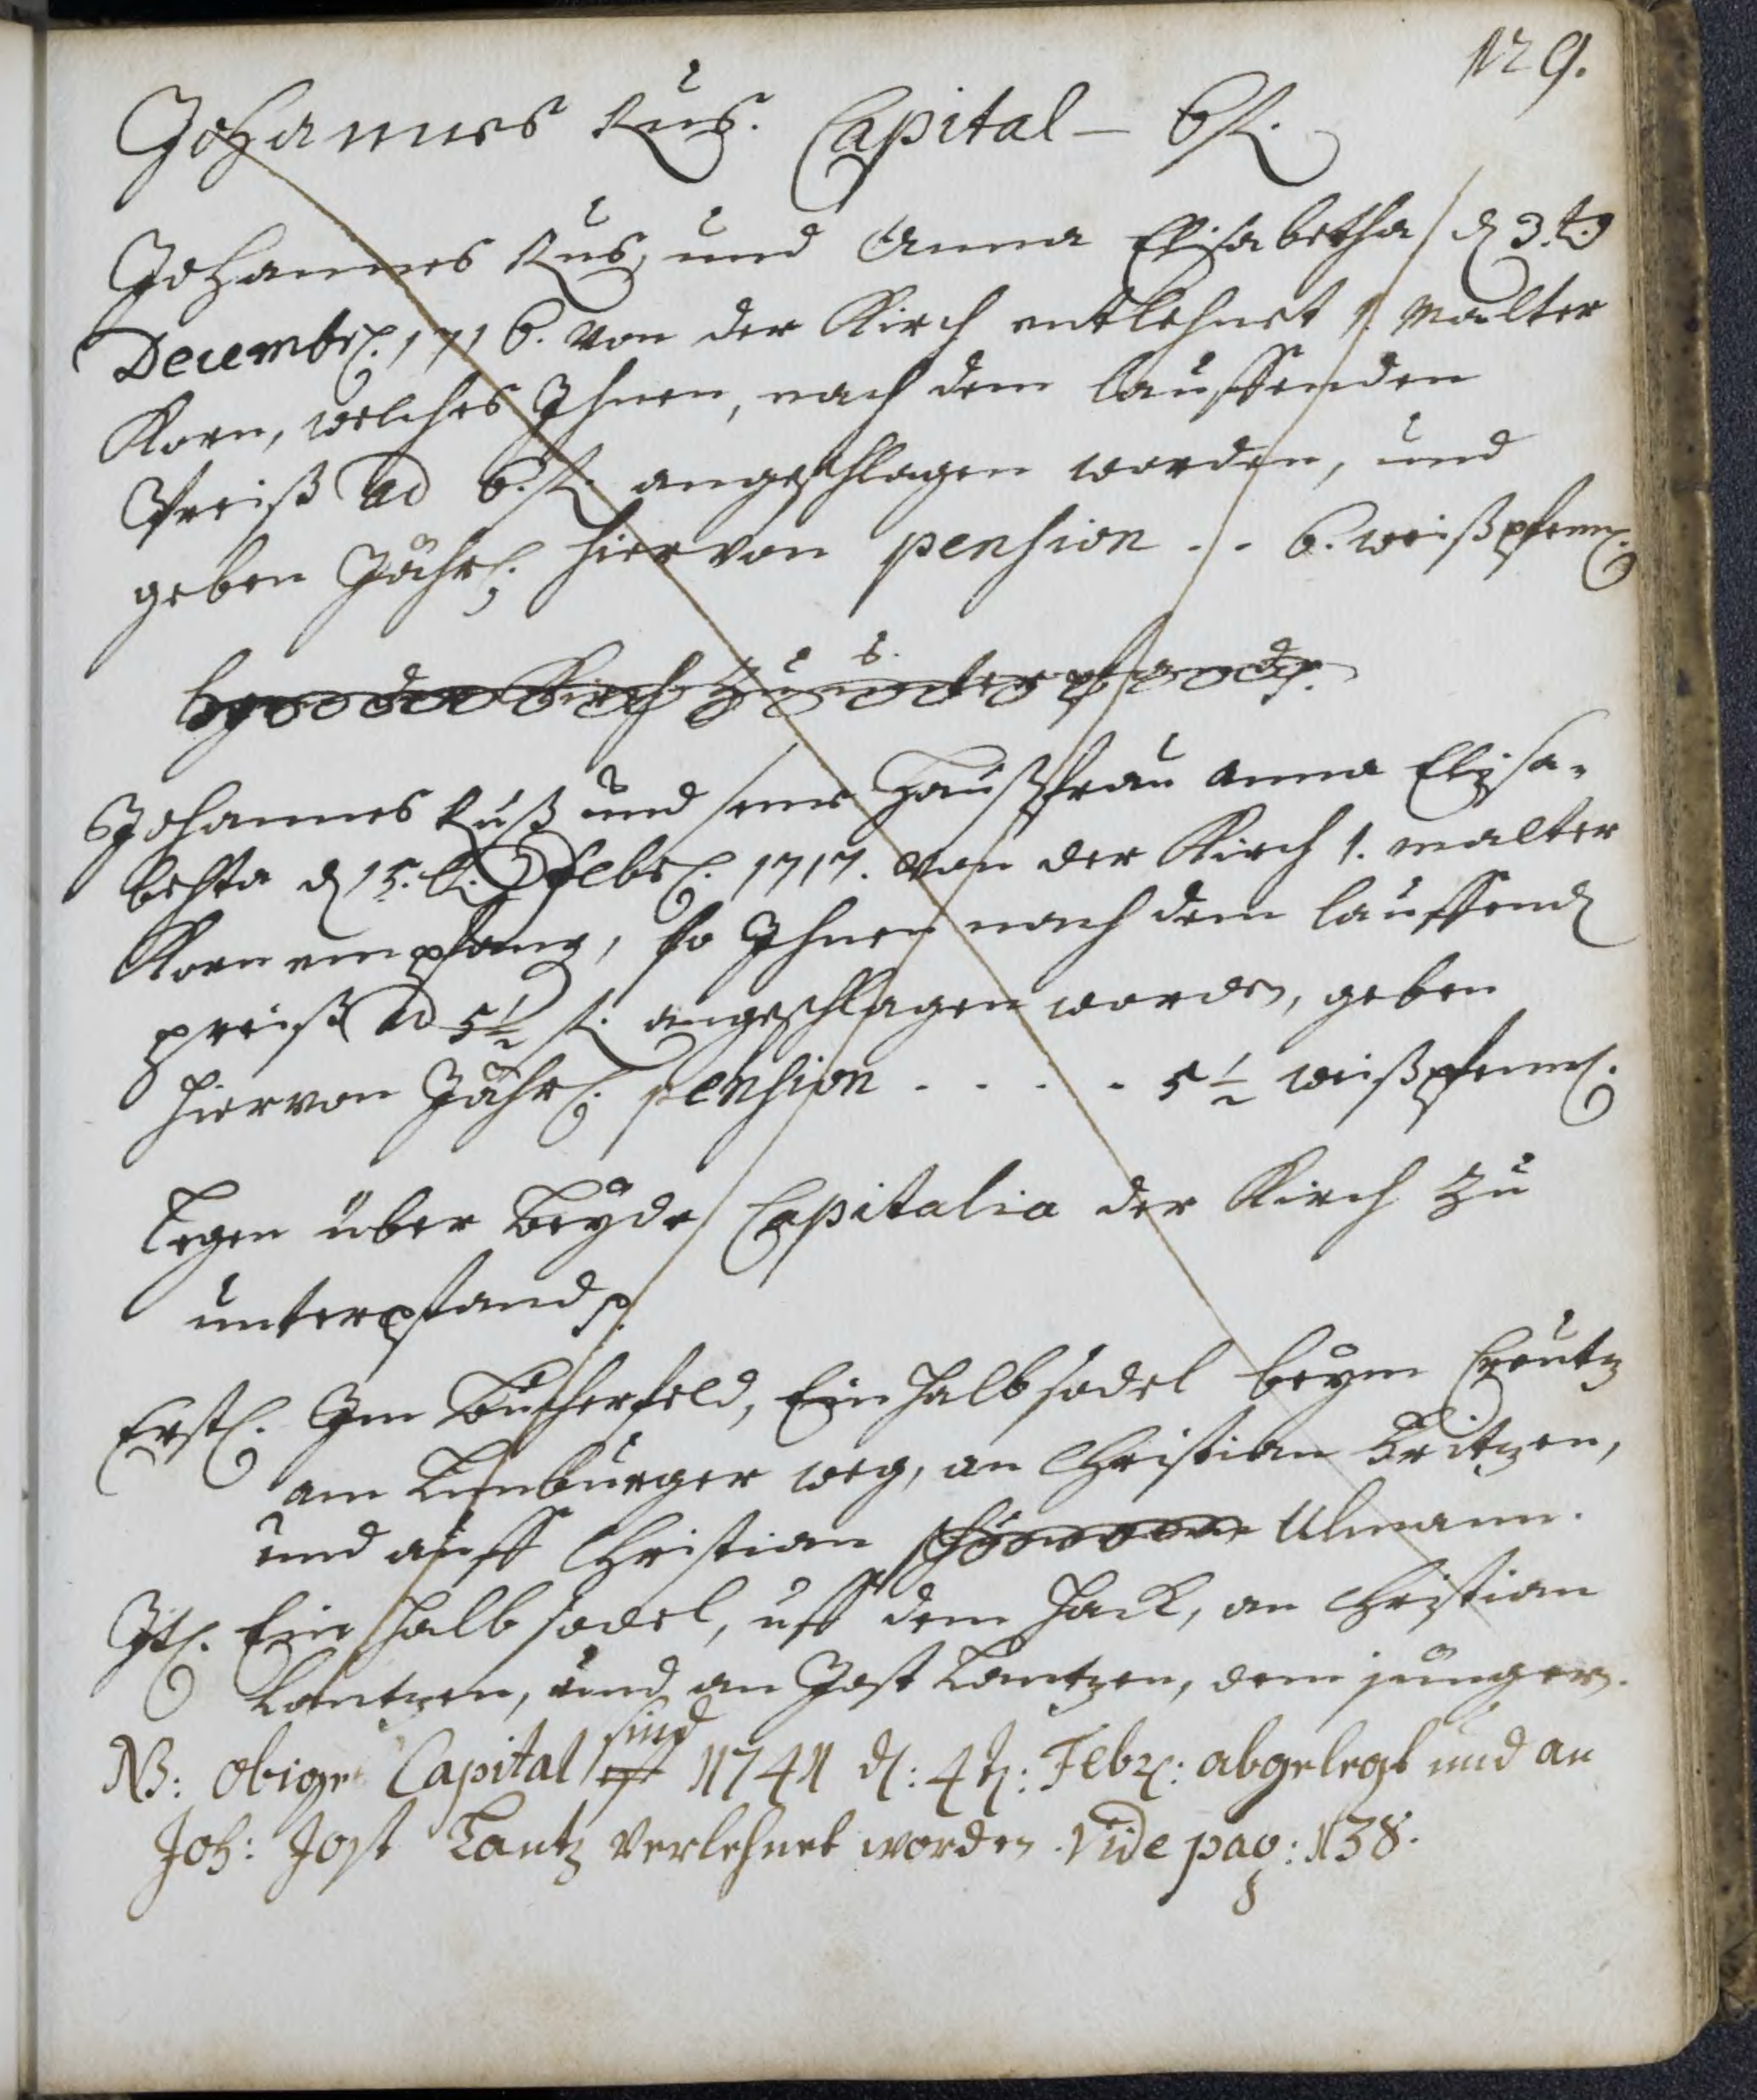 129.
Johannes Kuß. Capital – 6 fl.
Johannes Kuß, und Anna Elisabetha d 3.t.
Decembr. 1716. von der Kirch entlehnet 1. Malter
Korn, welches Ihnen, nach dem lauffenden
Preiß ad 6. fl. angeschlagen worden, und
geben Jährl. hiervon pension . . 6. weißpfenn.
der Kirch zu unterpfandt.
Johannes Kuß und seine Haußfrau Anna Elisa-
betha d 15.t. Febr. 1717. von der Kirch 1. malter
Korn empfang, so Ihnen nach dem lauffend
preiß ad 5½ fl. angeschlagen worden, geben
hiervon Jährl. pension . . . . 5½ weißpfenn.
Legen über beyde Capitalia der Kirch zu
unterpfandt.
Erstl. Im Bucherfeld, Ein halb sodel beym Creutz
am Limburger weg, an Christian Britzen,
und auff Christian Ulmann.
Itl. Ein halb sodel, uff dem Hack, an Christian
Lantzen, und an Jost Lantzen, dem jungern.
NB: obige Capital ist sind 1741 d: 4t: Febr: abgelegt und an
Joh: Jost Lantz verlehnet worden. Vide pag: 138.